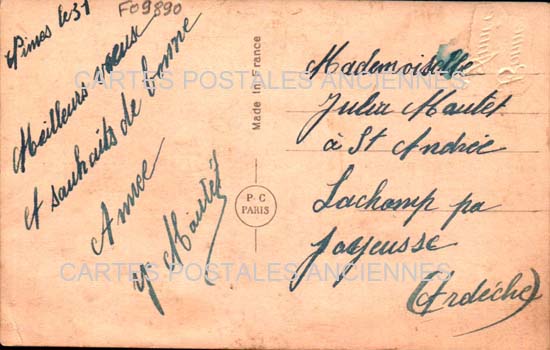 F09890
Nimes le 31
Meilleurs voeux
et souhaits de bonne
Année
Mautet
Made in France
P·C
PARIS
Mademoiselle
Julia Mautet
à St Andrée
Lachamp pa
Joyeusse
(Ardèche)
CARTES POSTALES ANCIENNES
CARTES POSTALES ANCIENNES